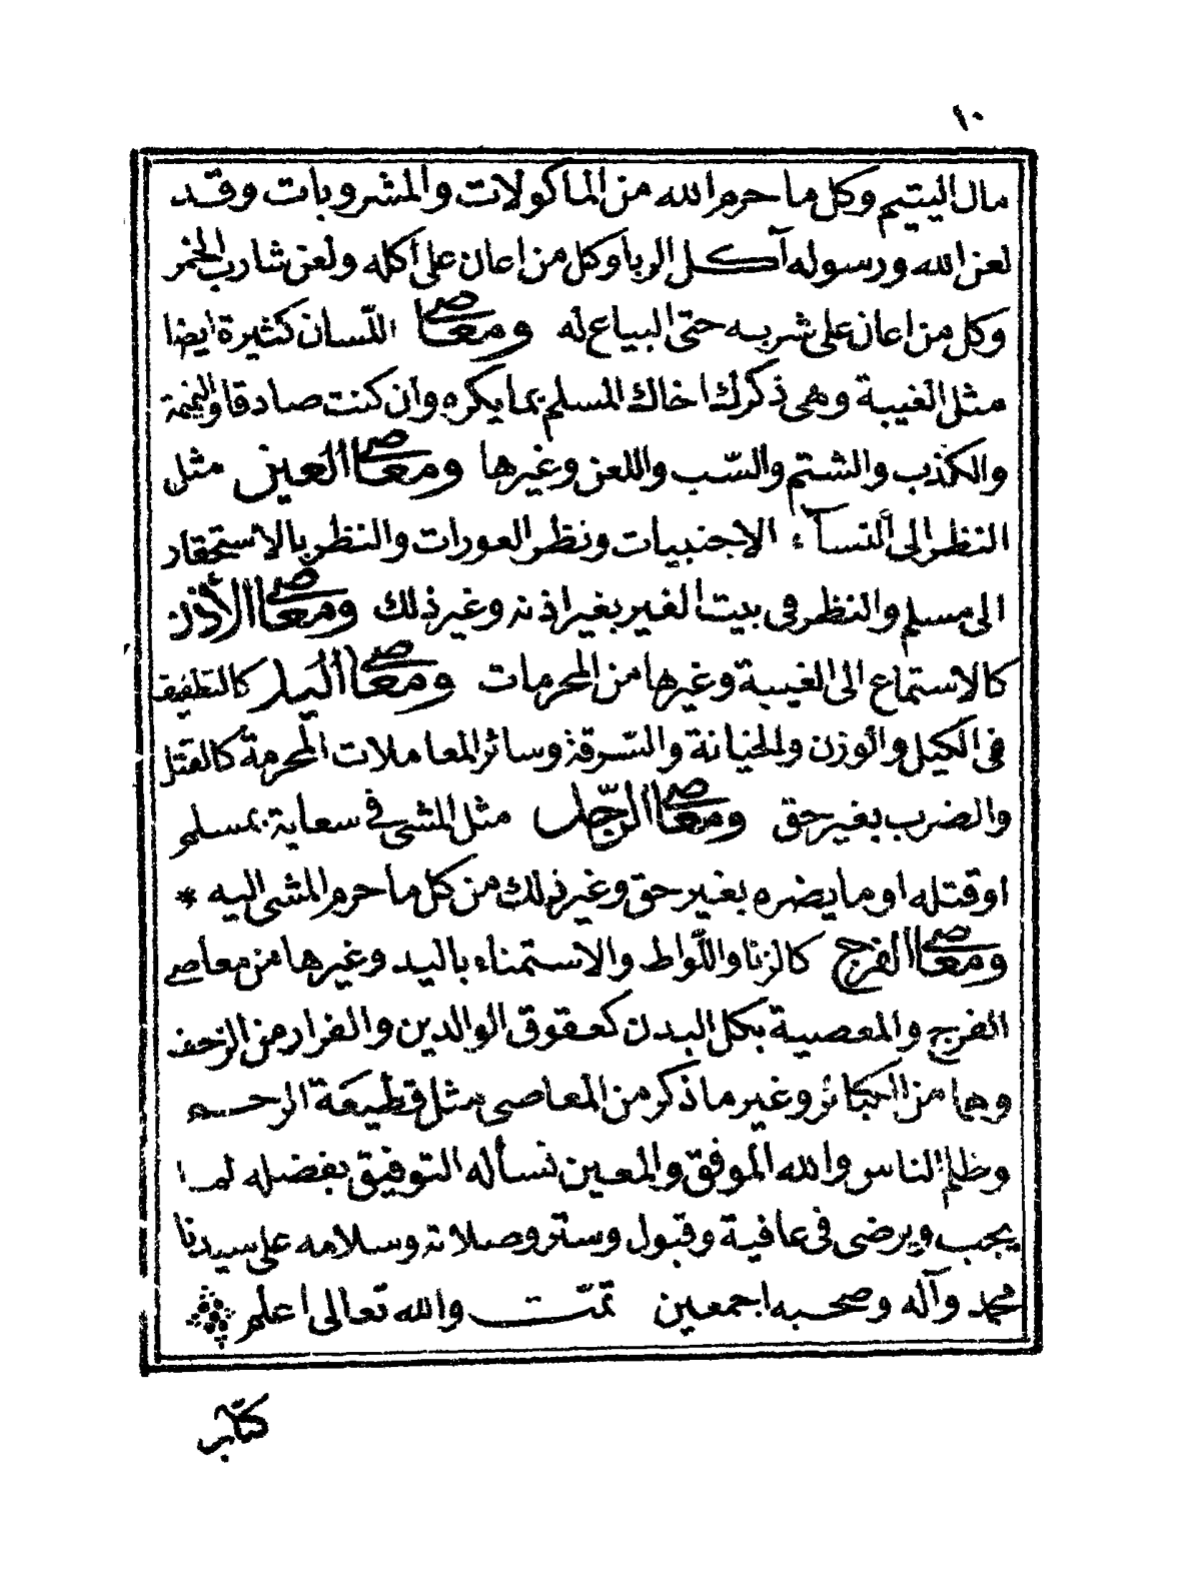 ١٠
مال اليتيم وكل ما حرم الله من الماكولات والمشروبات وقد
لعن الله ورسوله آكل الربا وكل من اعان على أكله ولعن شارب الخمر
وكل من اعان على شربه حتى البياع له ومعاصى اللّسان كثيرة ايضا
مثل الغيبة وهى ذكرك اخاك المسلم بما يكره وان كنت صادقا والنميمة
والكذب والشتم والسّب واللعن وغيرها ومعاصى العين مثل
النظر الى النسآء الاجنبيات ونظر العورات والنظر بالاستحقار
الى مسلم والنظر فى بيت الغير بغير اذنه وغير ذلك ومعاصى الأذن
كالاستماع الى الغيبة وغيرها من المحرمات ومعاصى اليد كالتطفيف
فى الكيل والوزن والخيانة والسّرقة وسائر المعاملات المحرمة كالقتل
والضرب بغير حق ومعاصى الرّجل مثل المشى في سعاية بمسلم
او قتله او ما يضره بغير حق وغير ذلك من كل ما حرم المشى اليه *
ومعاصى الفرج كالزنا واللّواط والاستمناء باليد وغيرها من معاصے
الفرج والمعصية بكل البدن كعقوق الوالدين والفرار من الزحف
وهما من الكبائر وغير ما ذكر من المعاصى مثل قطيعَة الرحم
وظلم الناس والله الموفق والمعين نسأله التوفيق بفضله لما
يجب ويرضى فى عافية وقبول وستر وصلاته وسلامه على سيدنا
محمد وآله وصحبه اجمعين تمّت والله تعالى اعلم
كتاب